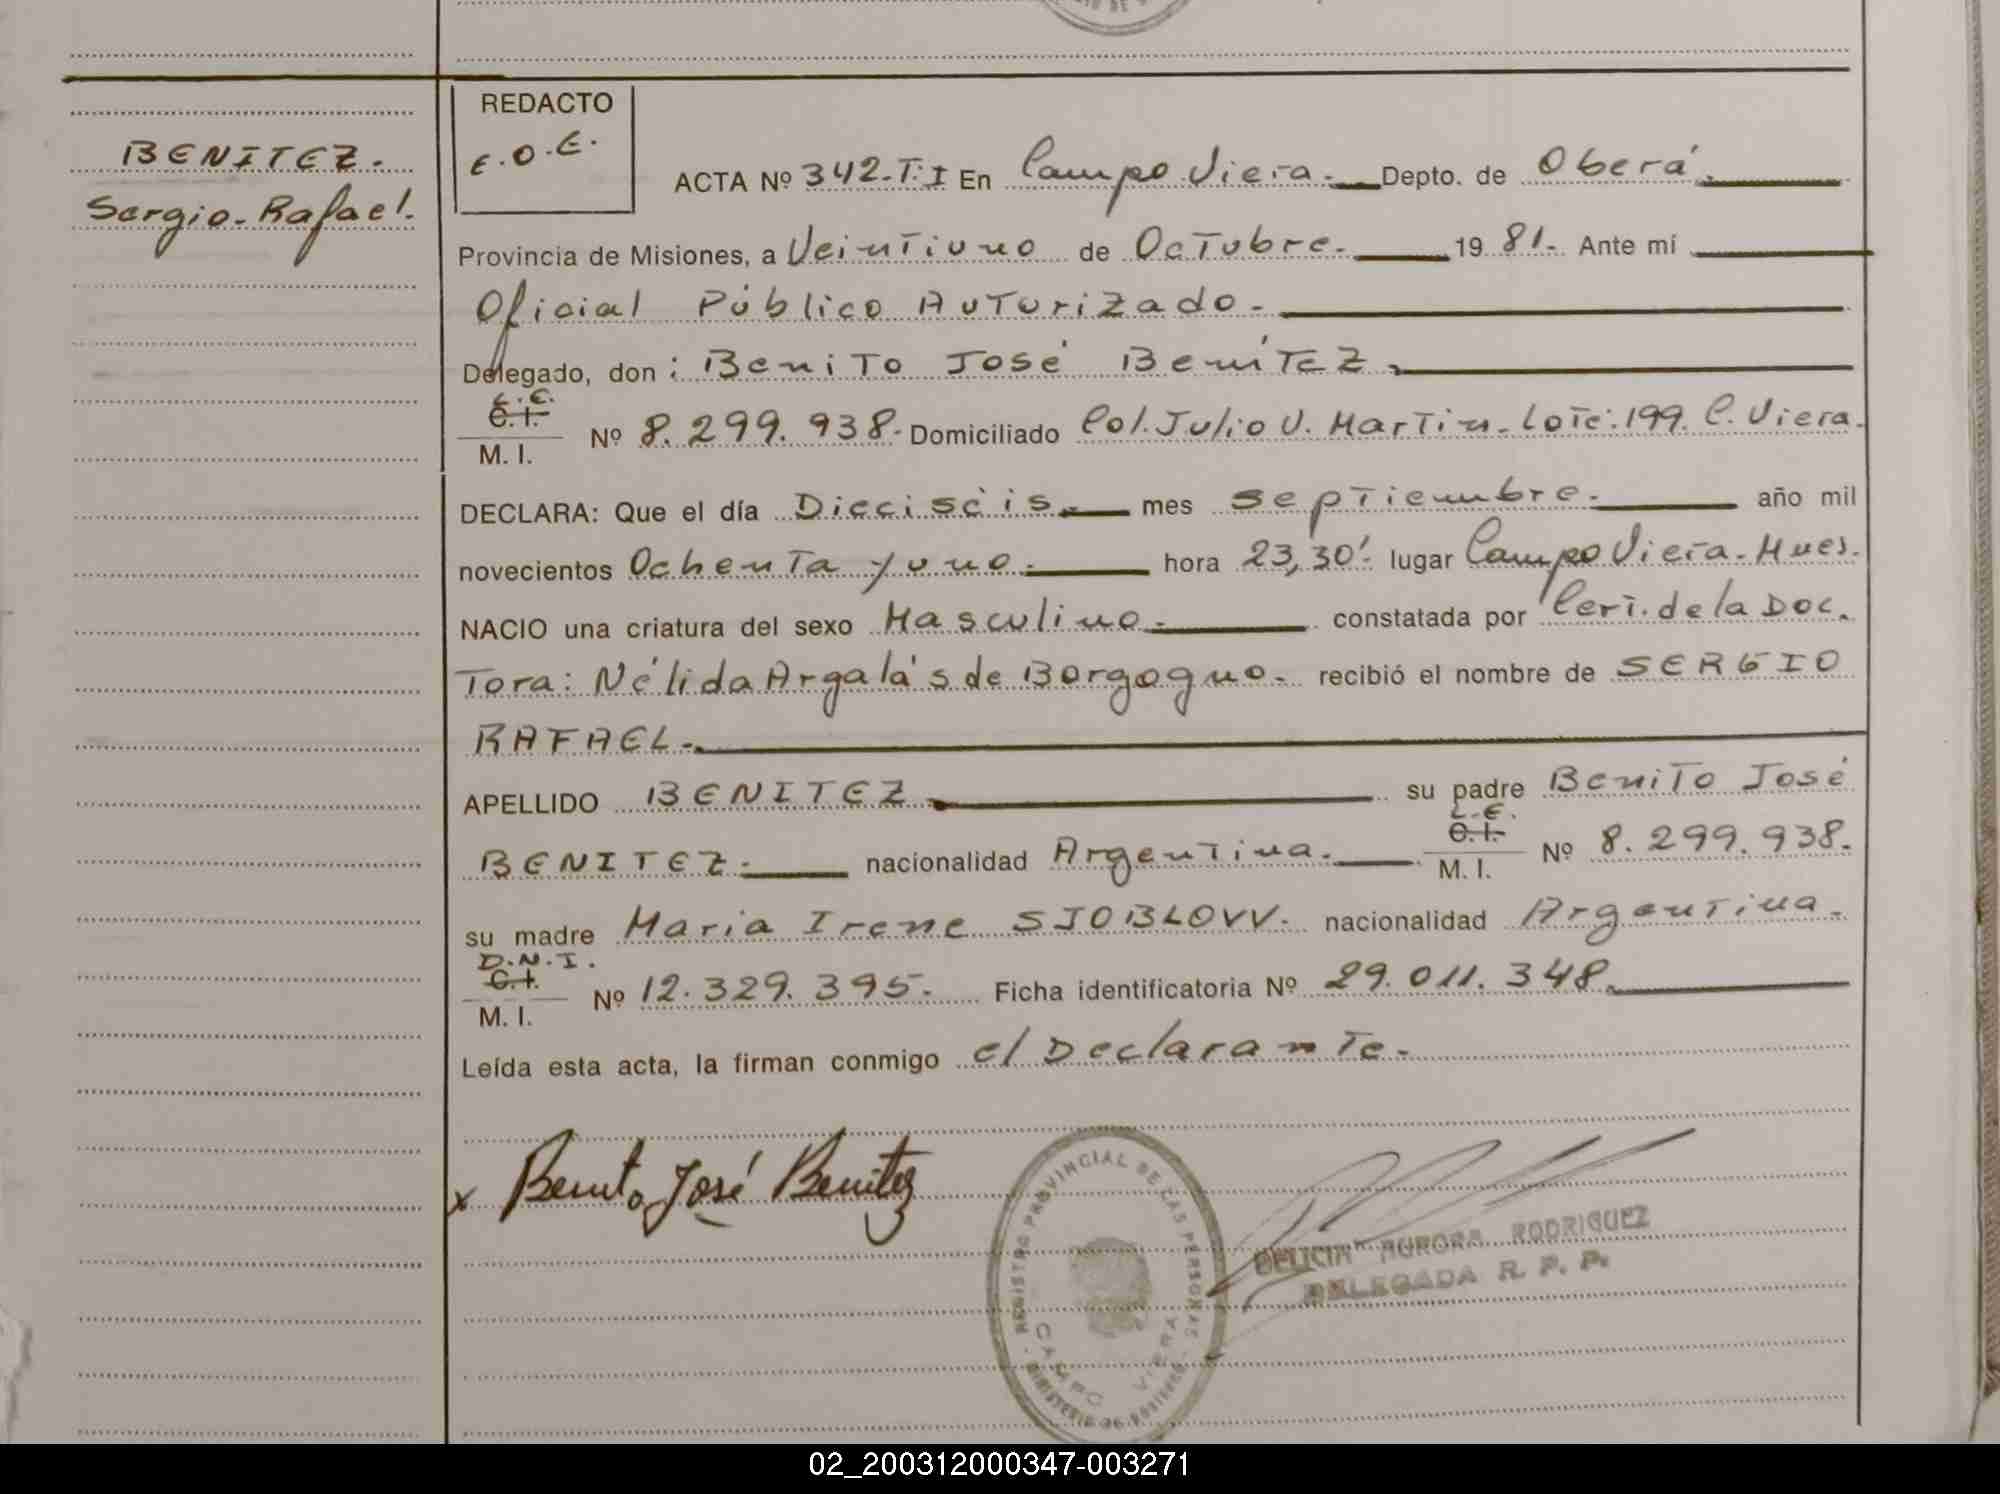 BENITEZ.
Sergio-Rafael.
REDACTO
E.O.E.
ACTA Nº 342-T.I En Campo Viera.- Depto. de Oberá.
Provincia de Misiones, a Veintiuno de Octubre. 1981.- Ante mí
Oficial Público Auturizado.-
Delegado, don: Benito José BenítEZ.
L.E.
C.I.
M. I.
Nº 8.299.938.- Domiciliado Col. Julio U. Martin- Lote: 199. C. Viera.
DECLARA: Que el día Dieciséis.- mes septiembre. año mil
novecientos Ochenta y uno.- hora 23,30'- lugar Campo Viera- Mnes.
NACIO una criatura del sexo Masculino.- constatada por Cert. de la Doc.
Tora: Nélida Argalá's de Borgogno.- recibió el nombre de SERGIO
RAFAEL.-
APELLIDO BENITEZ su padre Benito José
BENITEZ.- nacionalidad Argentina.-
L.E.
C.I.
M. I.
Nº 8.299.938.
su madre Maria Irene SJOBLOVV. nacionalidad Argentina.
D.N.I.
C.I.
M. I.
Nº 12.329.395.- Ficha identificatoria Nº 29.011.348.
Leída esta acta, la firman conmigo el Declarante.-
x Benito José Benitez
REGISTRO PROVINCIAL DE LAS PERSONAS
CAMPO VIERA
MINISTERIO DE GOBIERNO
DELICIA AURORA RODRIGUEZ
DELEGADA R. P. P.
02_200312000347-003271